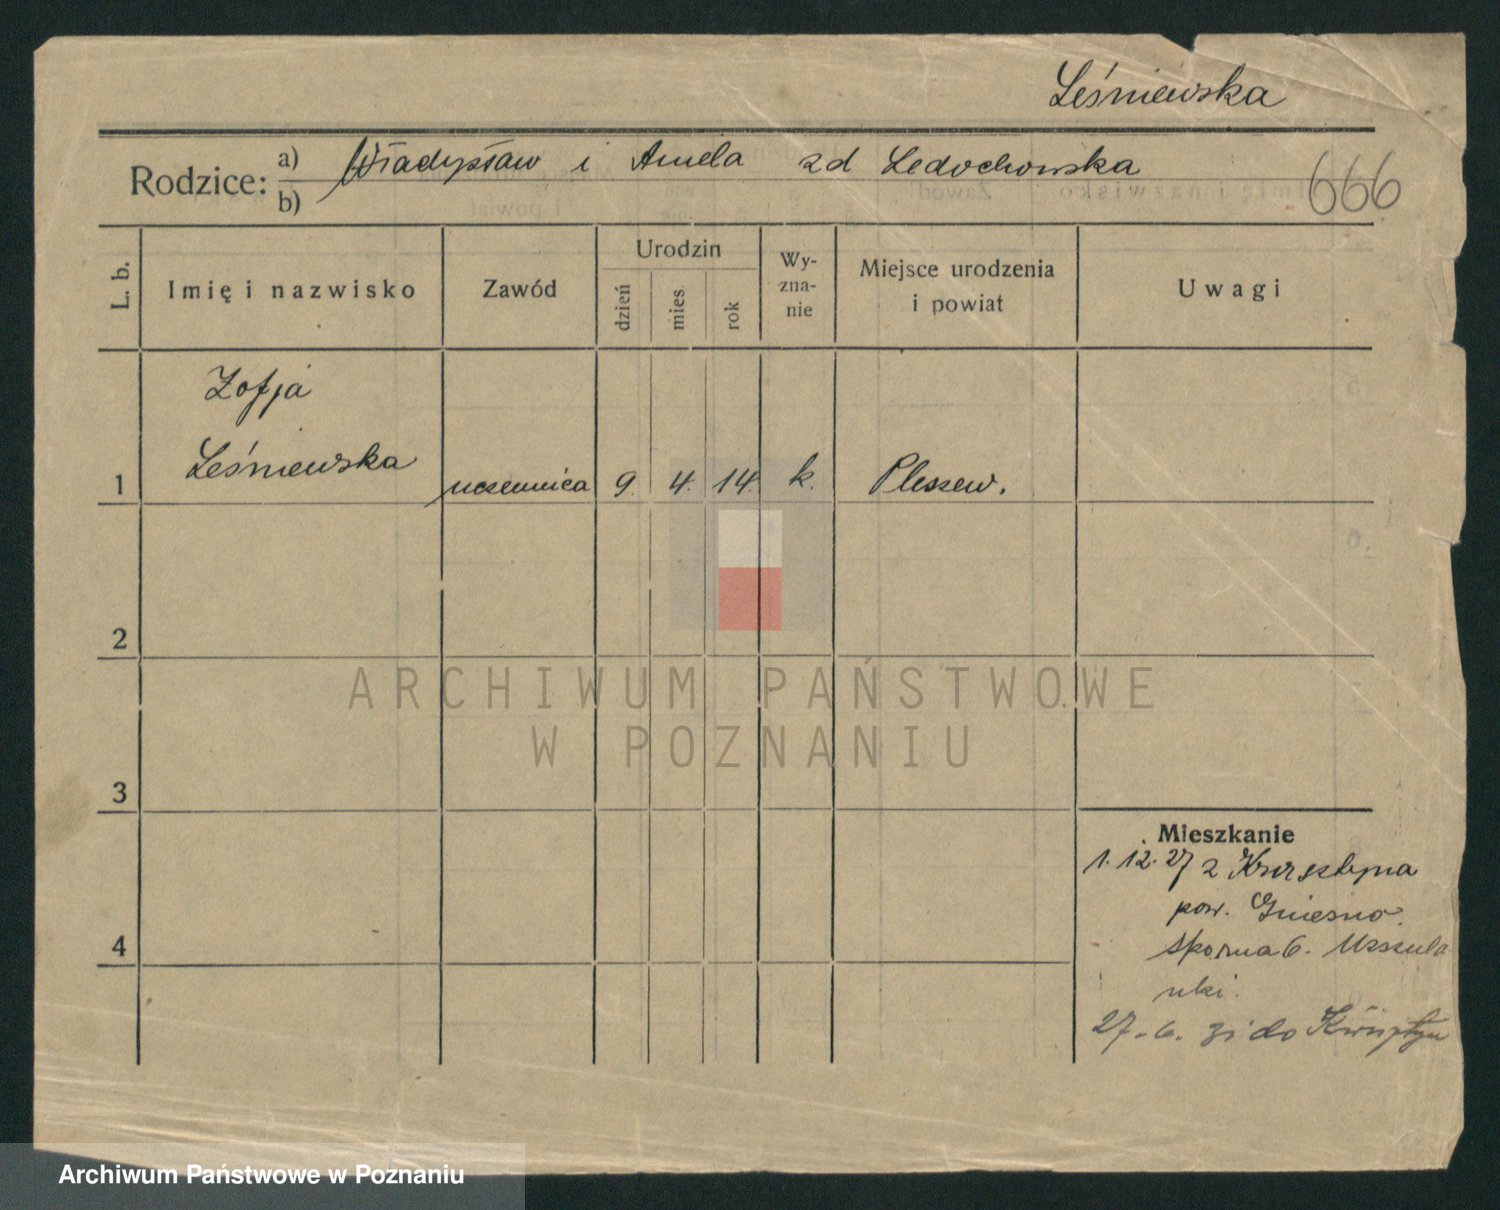 Leśniewska
Rodzice: a) Władysław i Amela zd Ledochowska
b)
666
L. b.
Imię i nazwisko
Zawód
Urodzin
dzień
mies.
rok
Wy-
zna-
nie
Miejsce urodzenia
i powiat
Uwagi
Zofja
Leśniewska
1
uczennica 9. 4. 14. k. Pleszew.
2
3
4
Mieszkanie
1. 12. 27 z
pow. Gniezno.
Sporna 6. Urszula
nki.
27.-6. do
ARCHIWUM PAŃSTWOWE
W POZNANIU
Archiwum Państwowe w Poznaniu